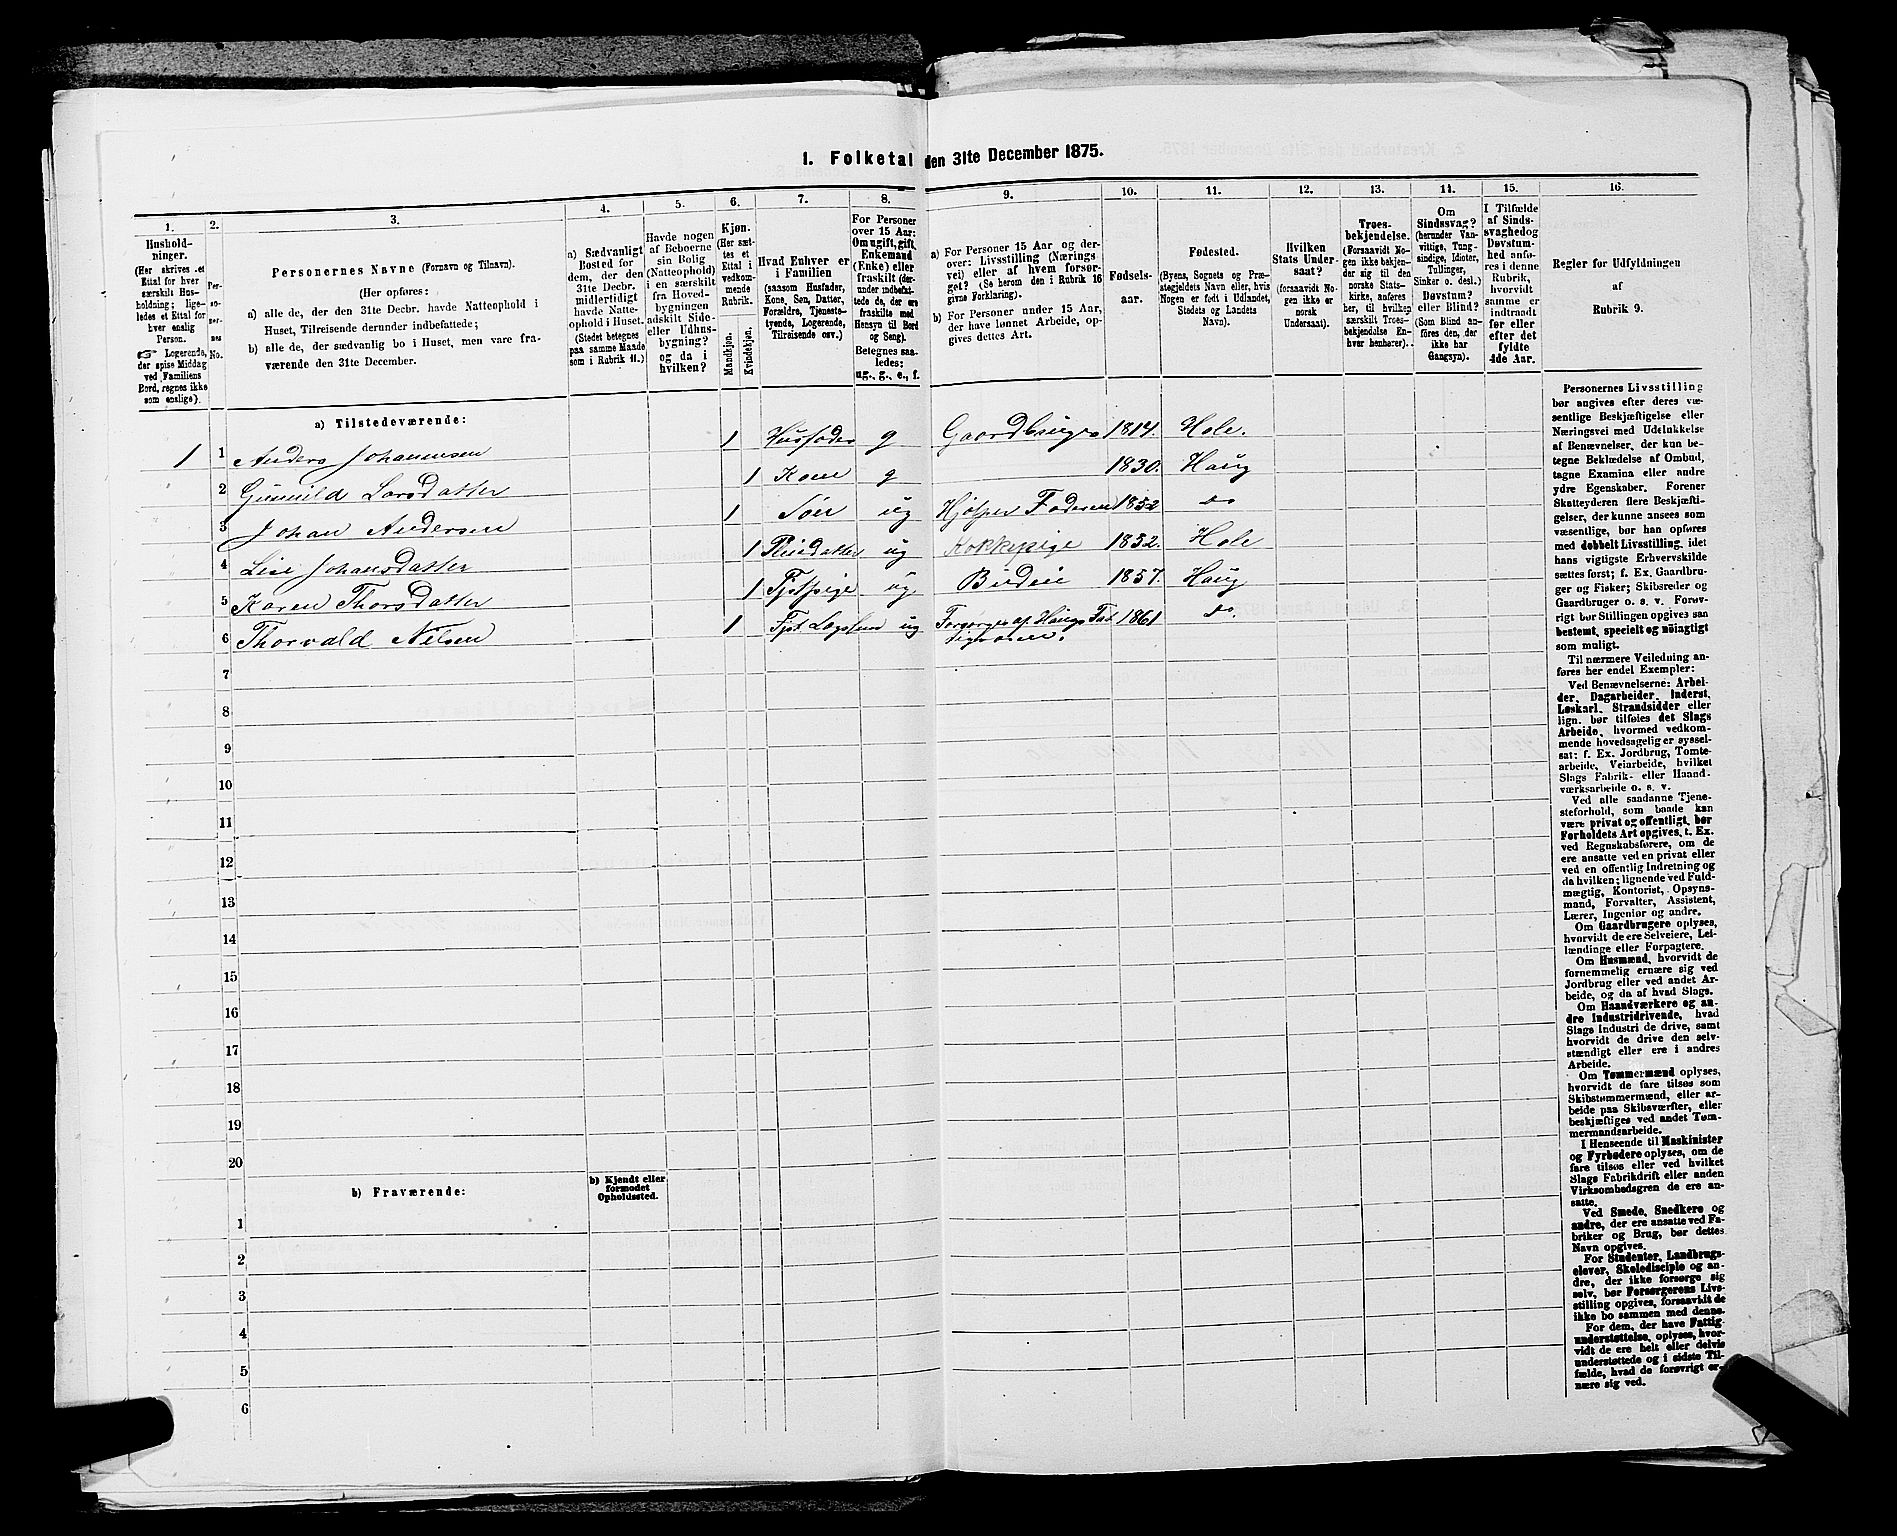 1. Folketal den 31te December 1875.
1. 2. 3. 4. 5. 6. 7. 8. 9. 10. 11. 12. 13. 14. 15. 16.
Hushold-
ninger.
(Her skrives et
Ettal for hver
særskilt Hus-
holdning; lige-
ledes et Ettal for
hver enslig
Person.
☞ Logerende,
der spise Middag
ved Familiens
Bord, regnes ikke
som enslige).
Per-
so-
ner-
nes
No.
Personernes Navne (Fornavn og Tilnavn).
(Her opføres:
a) alle de, der den 31te Decbr. havde Natteophold i
Huset, Tilreisende derunder indbefattede;
b) alle de, der sædvanlig bo i Huset, men vare fra-
værende den 31te December.
a) Sædvanligt
Bosted for
dem, der den
31te Decbr.
midlertidigt
havde Natte-
ophold i Huset.
(Stedet betegnes
paa samme Maade
som i Rubrik 11.)
Havde nogen
af Beboerne
sin Bolig
(Natteophold)
i en særskilt
fra Hoved-
bygningen
adskilt Side-
eller Udhus-
bygning?
og da i
hvilken?
Kjøn.
(Her sæt-
tes et
Ettal i
vedkom-
mende
Rubrik.
Mandkjøn.
Kvindekjøn.
Hvad Enhver er
i Familien
(saasom Husfader,
Kone, Søn, Datter,
Forældre, Tjeneste-
tyende, Logerende,
Tilreisende osv.)
For Personer
over 15 Aar:
Om ugift, gift,
Enkemand
(Enke) eller
fraskilt (der-
under indbefat-
tede de, der ere
fraskilte med
Hensyn til Bord
og Seng).
Betegnes saa-
ledes:
ug., g., e., f.
a) For Personer 15 Aar og der-
over: Livsstilling (Nærings-
vei) eller af hvem forsør-
get? (Se herom den i Rubrik 16
givne Forklaring).
b) For Personer under 15 Aar,
der have lønnet Arbeide, op-
gives dettes Art.
Fødsels-
aar.
Fødested.
(Byens, Sognets og Præ-
stegjeldets Navn eller, hvis
Nogen er født i Udlandet,
Stedets og Landets
Navn).
Hvilken
Stats Under-
saat?
(forsaavidt No-
gen ikke er
norsk
Undersaat).
Troes-
bekjendelse.
(Forsaavidt No-
gen ikke bekjen-
der sig til den
norske Stats-
kirke, anføres
her, til hvilken
særskilt Troes-
bekjendelse En-
hver henhører).
Om
Sindssvag?
(herunder Van-
vittige, Tung-
sindige, Idioter,
Tullinger,
Sinker o. desl.)
Døvstum?
eller Blind?
(Som Blind an-
føres den, der
ikke har
Gangsyn).
I Tilfælde
af Sinds-
svaghed og
Døvstum-
hed anfø-
res i denne
Rubrik,
hvorvidt
samme er
indtraadt
før eller
efter det
fyldte
4de Aar.
Regler før Udfyldningen
af
Rubrik 9.
a) Tilstedeværende:
1 1 Anders Johannesen 1 Husfader g Gaardbruger 1814. Hole.
2 Gunnild Larsdatter 1 Kone g 1830. Haug
3 Johan Andersen 1 Søn ug Hjelper Faderen 1852 do
4 Lise Johansdatter 1 ug Kokkepige 1832. Hole
5 Karen Thorsdatter 1 ug. Budeie 1857. Haug
6 Thorvald Nilsen 1 ug Forsørges af Haugs Fat- 1861 do.
tigvæsen.
7
8
9
10
11
12
13
14
15
16
17
18
19
20
b) Fraværende:
b) Kjendt eller
formodet
Opholdssted.
1
2
3
4
5
6
Personernes Livsstilling
bør angives efter deres væ-
sentlige Beskjæftigelse eller
Næringsvei med Udelukkelse
af Benævnelser, der kun be-
tegne Beklædelse af Ombud,
tagne Examina eller andre
ydre Egenskaber. Forener
Skatteyderen flere Beskjæfti-
gelser, der kunne ansees som
væsentlige, bør han opføres
med dobbelt Livsstilling, idet
hans vigtigste Erhvervskilde
sættes først; f. Ex. Gaardbru-
ger og Fisker; Skibsreder og
Gaardbruger o. s. v. Forøv-
rigt bør Stillingen opgives saa
bestemt, specielt og nøiagtigt
som muligt.
Til nærmere Veiledning an-
føres her endel Exempler:
Ved Benævnelserne: Arbei-
der, Dagarbeider, Inderst,
Løskarl, Strandsidder eller
lign. bør tilføies det Slags
Arbeide, hvormed vedkom-
mende hovedsagelig er syssel-
sat: f. Ex. Jordbrug, Tomte-
arbeide, Veiarbeide, hvilket
Slags Fabrik- eller Haand-
værksarbeide o. s. v.
Ved alle saadanne Tjene-
steforhold, som baade kan
være privat og offentligt, bør
Forholdets Art opgives, t. Ex.
ved Regnskabsførere, om de
ere ansatte ved en privat eller
ved en offentlig Indretning og
da hvilken; lignende ved Fuld-
mægtig, Kontorist, Opsyns-
mand, Forvalter, Assistent,
Lærer, Ingeniør og andre.
Om Gaardbrugere oplyses,
hvorvidt de ere Selveiere, Lei-
lændinge eller Forpagtere.
Om Husmænd, hvorvidt de
fornemmelig ernære sig ved
Jordbrug eller ved andet Ar-
beide, og da af hvad Slags.
Om Haandværkere og an-
dre Industridrivende, hvad
Slags Industri de drive, samt
hvorvidt de drive den selv-
stændigt eller ere i andres
Arbeide.
Om Tømmermænd oplyses,
hvorvidt de fare tilsøs som
Skibstømmermænd, eller ar-
beide paa Skibsværfter, eller
beskjæftiges ved andet Tøm-
mermandsarbeide.
I Henseende til Maskinister
og Fyrbødere oplyses, om de
fare tilsøs eller ved hvilket
Slags Fabrikdrift eller anden
Virksomhedsgren de ere an-
satte.
Ved Smede, Snedkere og
andre, der ere ansatte ved Fa-
briker og Brug, bør dettes
Navn opgives.
For Studenter, Landbrugs-
elever, Skoledisciple og an-
dre, der ikke forsørge sig
selv, bør Forsørgerens Livs-
stilling opgives, forsaavidt de
ikke bo sammen med denne.
For dem, der have Fattig-
understøttelse, oplyses, hvor-
vidt de ere helt eller delvis
understøttede og i sidste Til-
fælde, hvad de forøvrigt er-
nære sig ved.